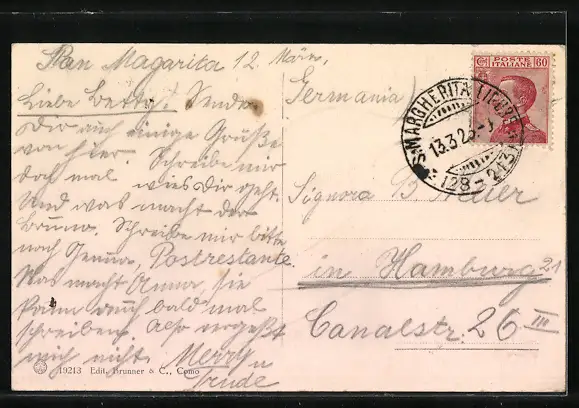 San Magarita 12. März,
Liebe Betty! Sende
Dir auch einige Grüße
von hier. Schreibe mir
doch mal wies Dir geht.
Und was macht der
Bruno. Schreibe mir bitte
nach Genua, Postrestante.
Was macht Anna, sie
kann auch bald mal
schreiben. Also vergeßt
mich nicht Merry
u
Trude
19213 Edit. Brunner & C., Como
Germania
POSTE
ITALIANE
Cent 60
S. MARGHERITA LIGURE
13.3.26
(28-213)
Signora B.
in Hamburg 21
Canalstr. 26 III